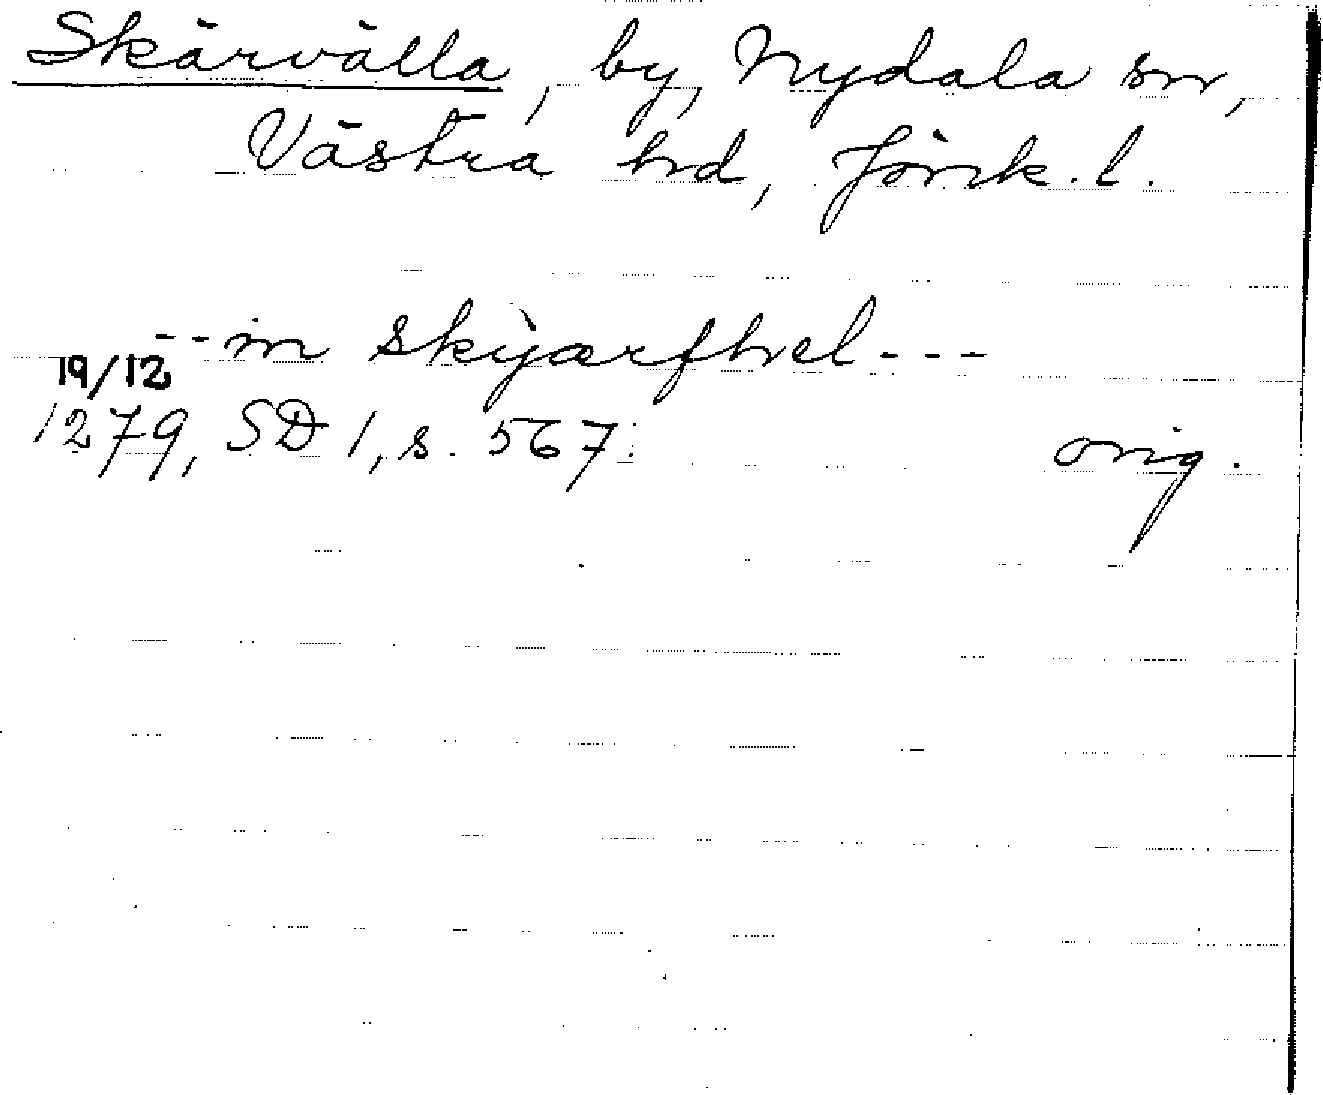 Skärvälla, by, Nydala sn,
Västra hd, Jönk. l.
-- in skyærfhvel ---
19/12
1279, SD 1, s. 567. orig.